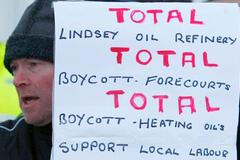 TOTAL
LINDSEY OIL REFINERY
TOTAL
BOYCOTT-FORECOURTS
TOTAL
BOYCOTT-HEATING OIL'S
SUPPORT LOCAL LABOUR